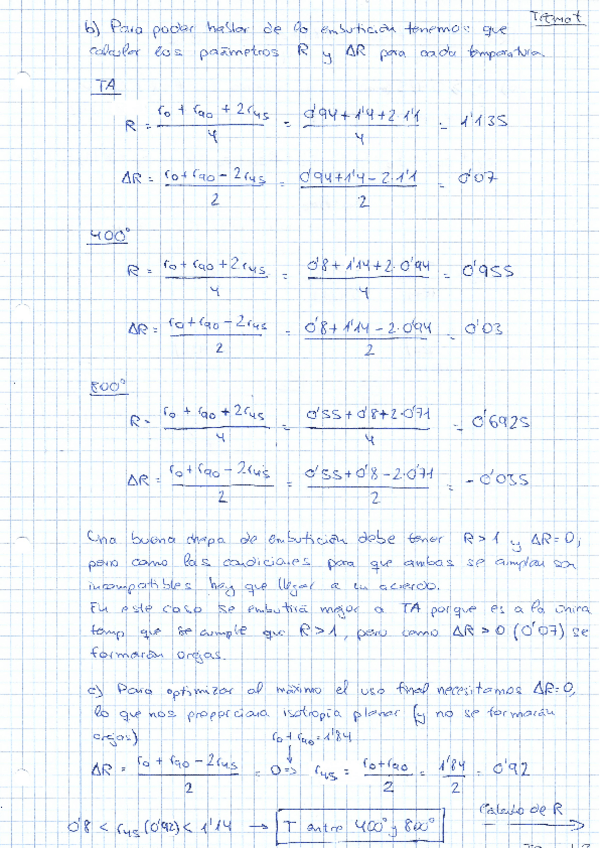 b) Para poder hablar de la embutición tenemos que
calcular los parámetros R y ΔR para cada temperatura.
TA
R = (r0 + r90 + 2r45)/4 = (0'94 + 1'4 + 2·1'1)/4 = 1'135
ΔR = (r0 + r90 - 2r45)/2 = (0'94 + 1'4 - 2·1'1)/2 = 0'07
400°
R = (r0 + r90 + 2r45)/4 = (0'8 + 1'14 + 2·0'94)/4 = 0'955
ΔR = (r0 + r90 - 2r45)/2 = (0'8 + 1'14 - 2·0'94)/2 = 0'03
800°
R = (r0 + r90 + 2r45)/4 = (0'55 + 0'8 + 2·0'71)/4 = 0'6925
ΔR = (r0 + r90 - 2r45)/2 = (0'55 + 0'8 - 2·0'71)/2 = -0'035
Una buena chapa de embutición debe tener R>1 y ΔR=0,
pero como las condiciones para que ambas se cumplan son
incompatibles hay que llegar a un acuerdo.
En este caso se embutirá mejor a TA porque es a la única
temp que se cumple que R>1, pero como ΔR>0 (0'07) se
formarán orejas.
c) Para optimizar al máximo el uso final necesitamos ΔR=0,
lo que nos proporciona isotropía planar (y no se formarán
orejas)
r0 + r90 = 1'84
ΔR = (r0 + r90 - 2r45)/2 = 0 => r45 = (r0 + r90)/2 = 1'84/2 = 0'92
0'8 < r45 (0'92) < 1'14 → T entre 400° y 800°
Calculo de R